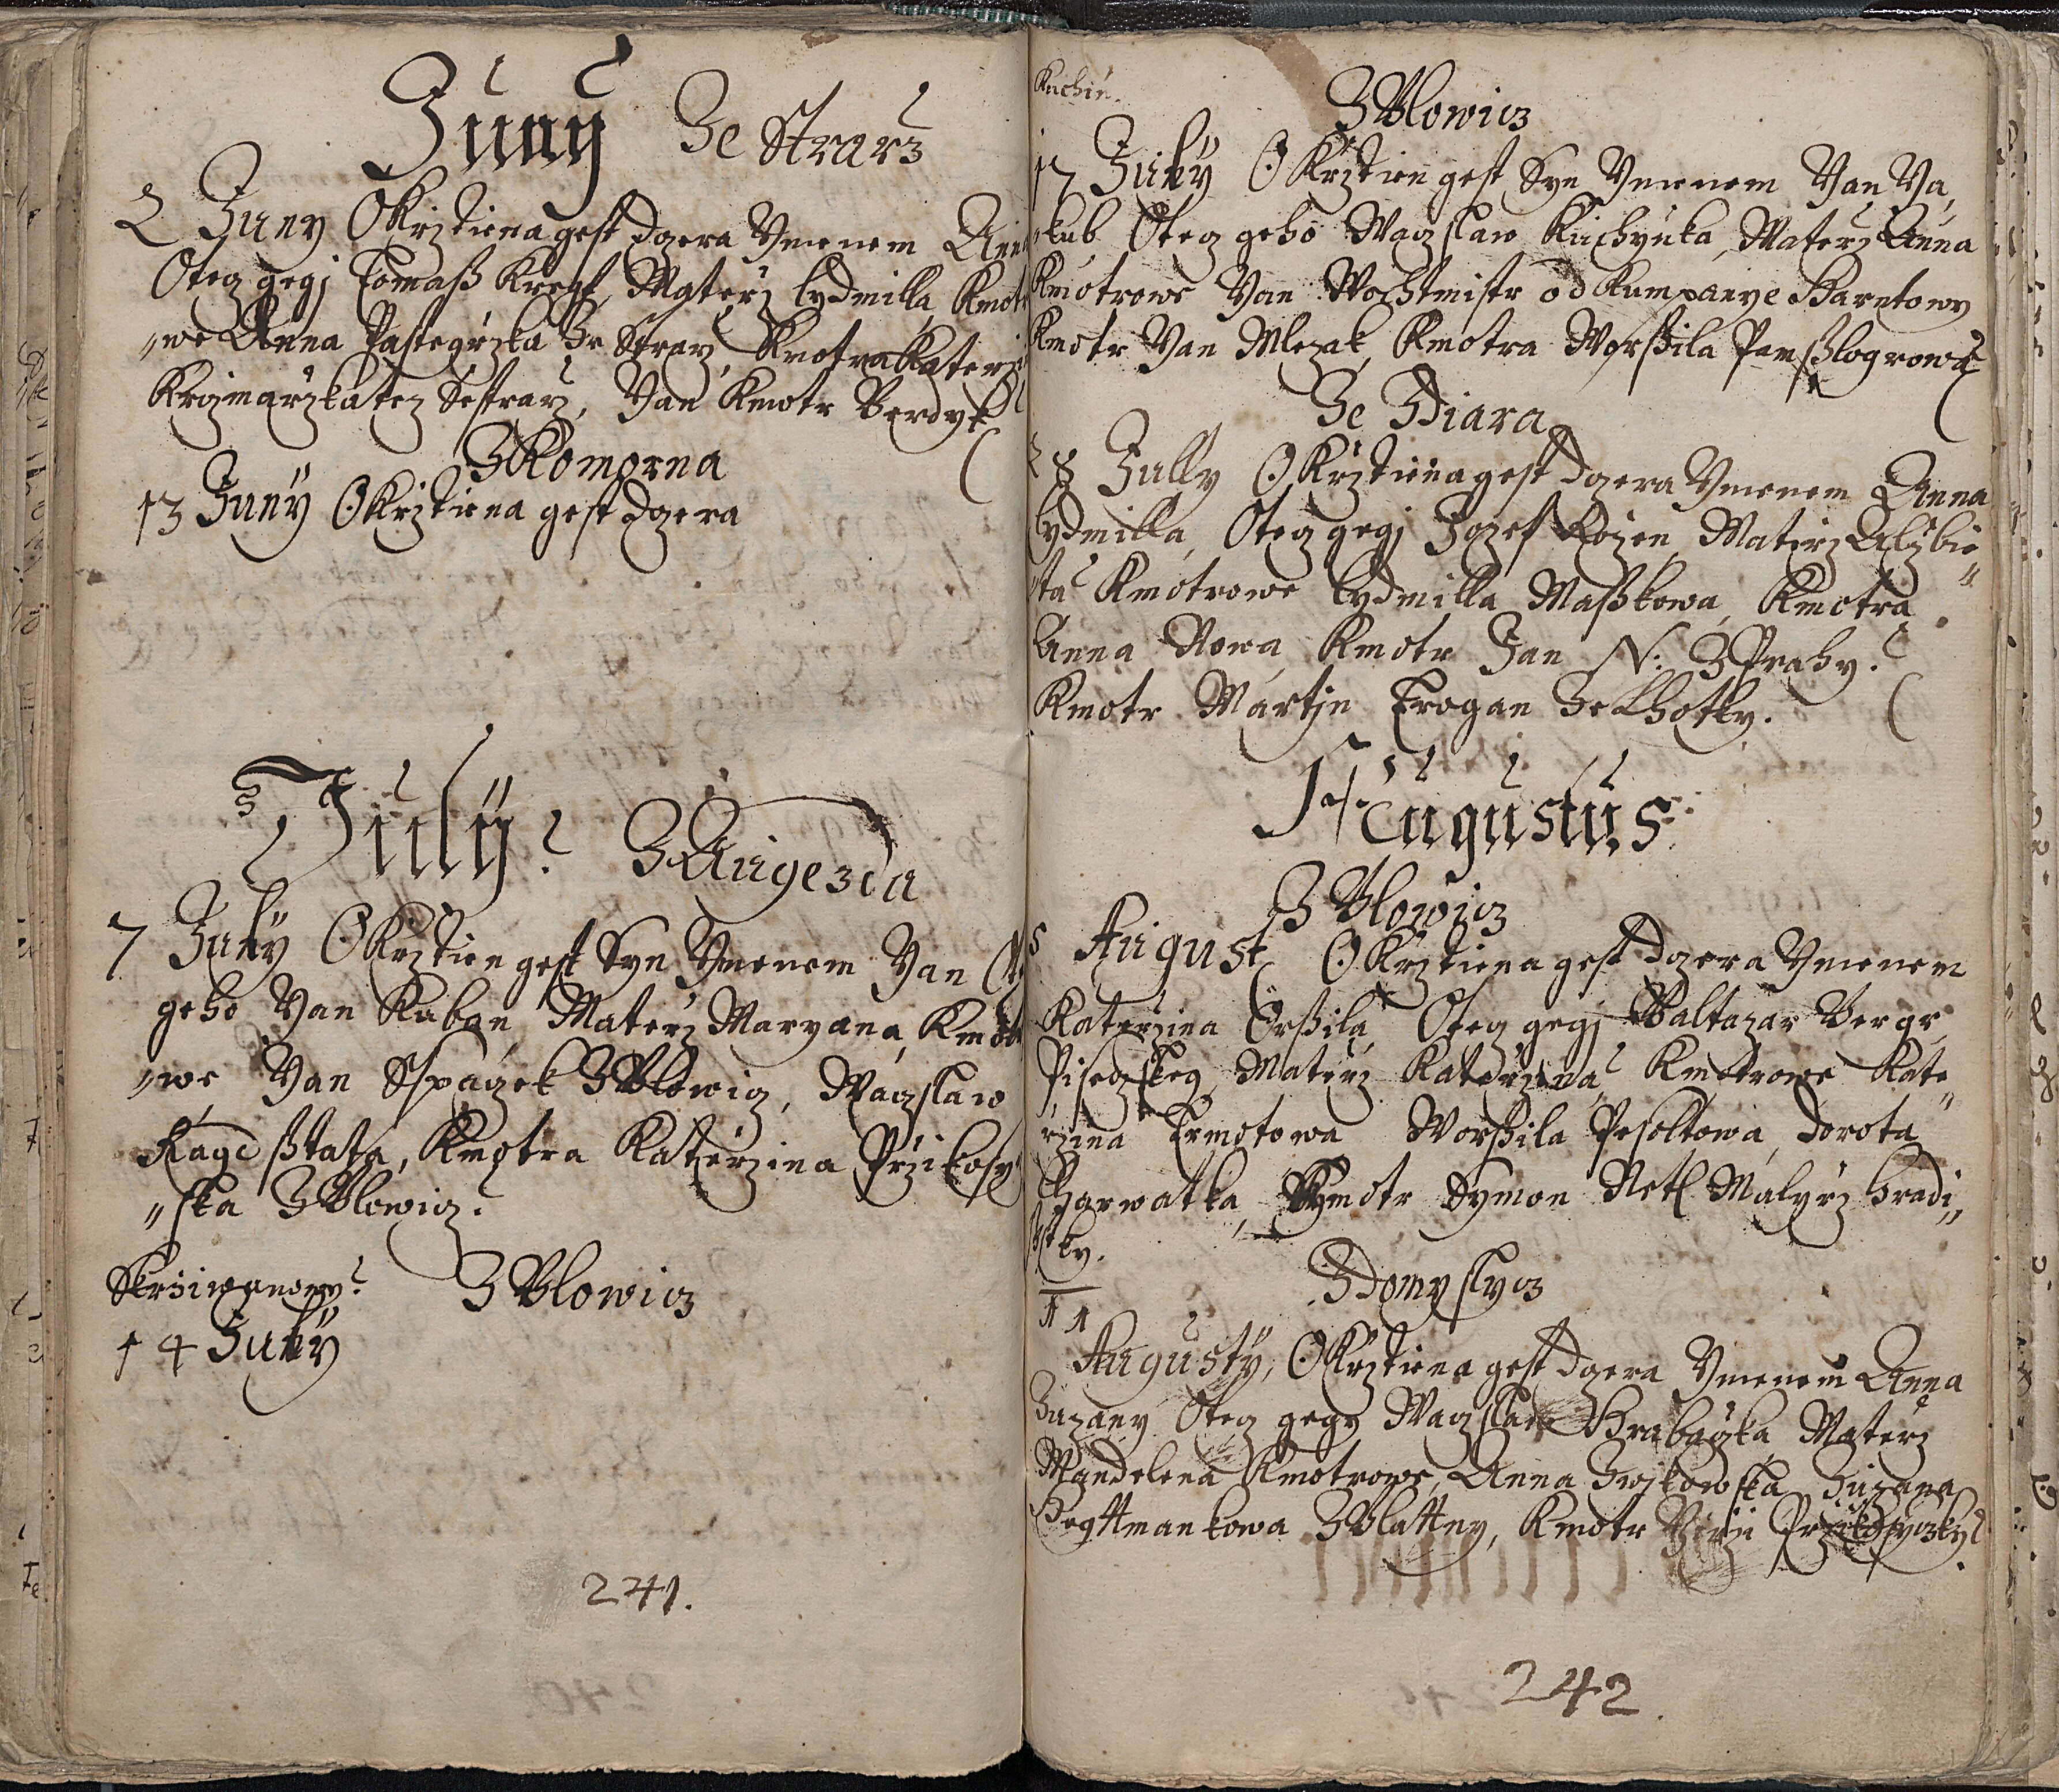 Juny Ze Strarz
2 Juny Okrztiena gest dczera Ymenem Anna
Otecz gegj Tomaß Materz Lydmilla Kmotr
„we Anna Pastegrzka Ze Strarz, Kmotra Katerzi
Krczmarzka tez Sestrarz, Yan Kmotr Berdyk
Z Komorna
13 Juny Okrztiena gest dczera
July Z Augezda
7 July Okrztien gest Syn Ymenem Yan Ote
geho Yan Kuban, Materz Maryana, Kmotr
„we Yan Sspaczek Z Blowicz, Waczslaw
Kmotra Katerzina Przikosy
„ska Z Blowicz.
Z Blowicz
14 July
241.
Kuchin.
Z Blowicz
17 July Okrztien gest Syn Ymenem Yan Ya„
kub Otecz geho Waczslaw Kuchynka, Materz Anna
Kmotrowe Yan Wachtmistr od Kumpanye
Kmotr Yan Mlezak, Kmotra Worßila
Ze Zdiara
28 July Okrztiena gest dczera Ymenem Anna
Lydmilla, Otecz gegj Jozef Materz Alzbie„
„ta Kmotrowe Lydmilla Maßkowa, Kmotra
Anna Nowa Kmotr Jan N: Z Prahy.
Kmotr Martjn Trogan Ze Lhotky.
Augustus
Z Blowicz
5 August Okrztiena gest dczera Ymenem
Katerzina Orßila, Otecz gegj Baltazar Bergr,
Materz Katerzina, Kmotrowe Kate„
rzina Worßila Pesoltowa, Dorota
Charwatka, Kmotr Symon Netl Malyrz Hradi„
stky.
Z Domyslycz
11
Augusty, Okrztiena gest dczera Ymenem Anna
Zuzany Otecz gegy Waczslaw Hrabaczka Materz
Mandelena Kmotrowe, Anna Zuzana
Hegttmankowa Z Blattny, Kmotr Girzi
242.